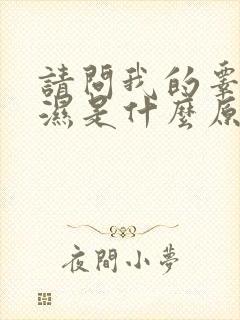 請問我的要
濕是什麼原
夜間小夢